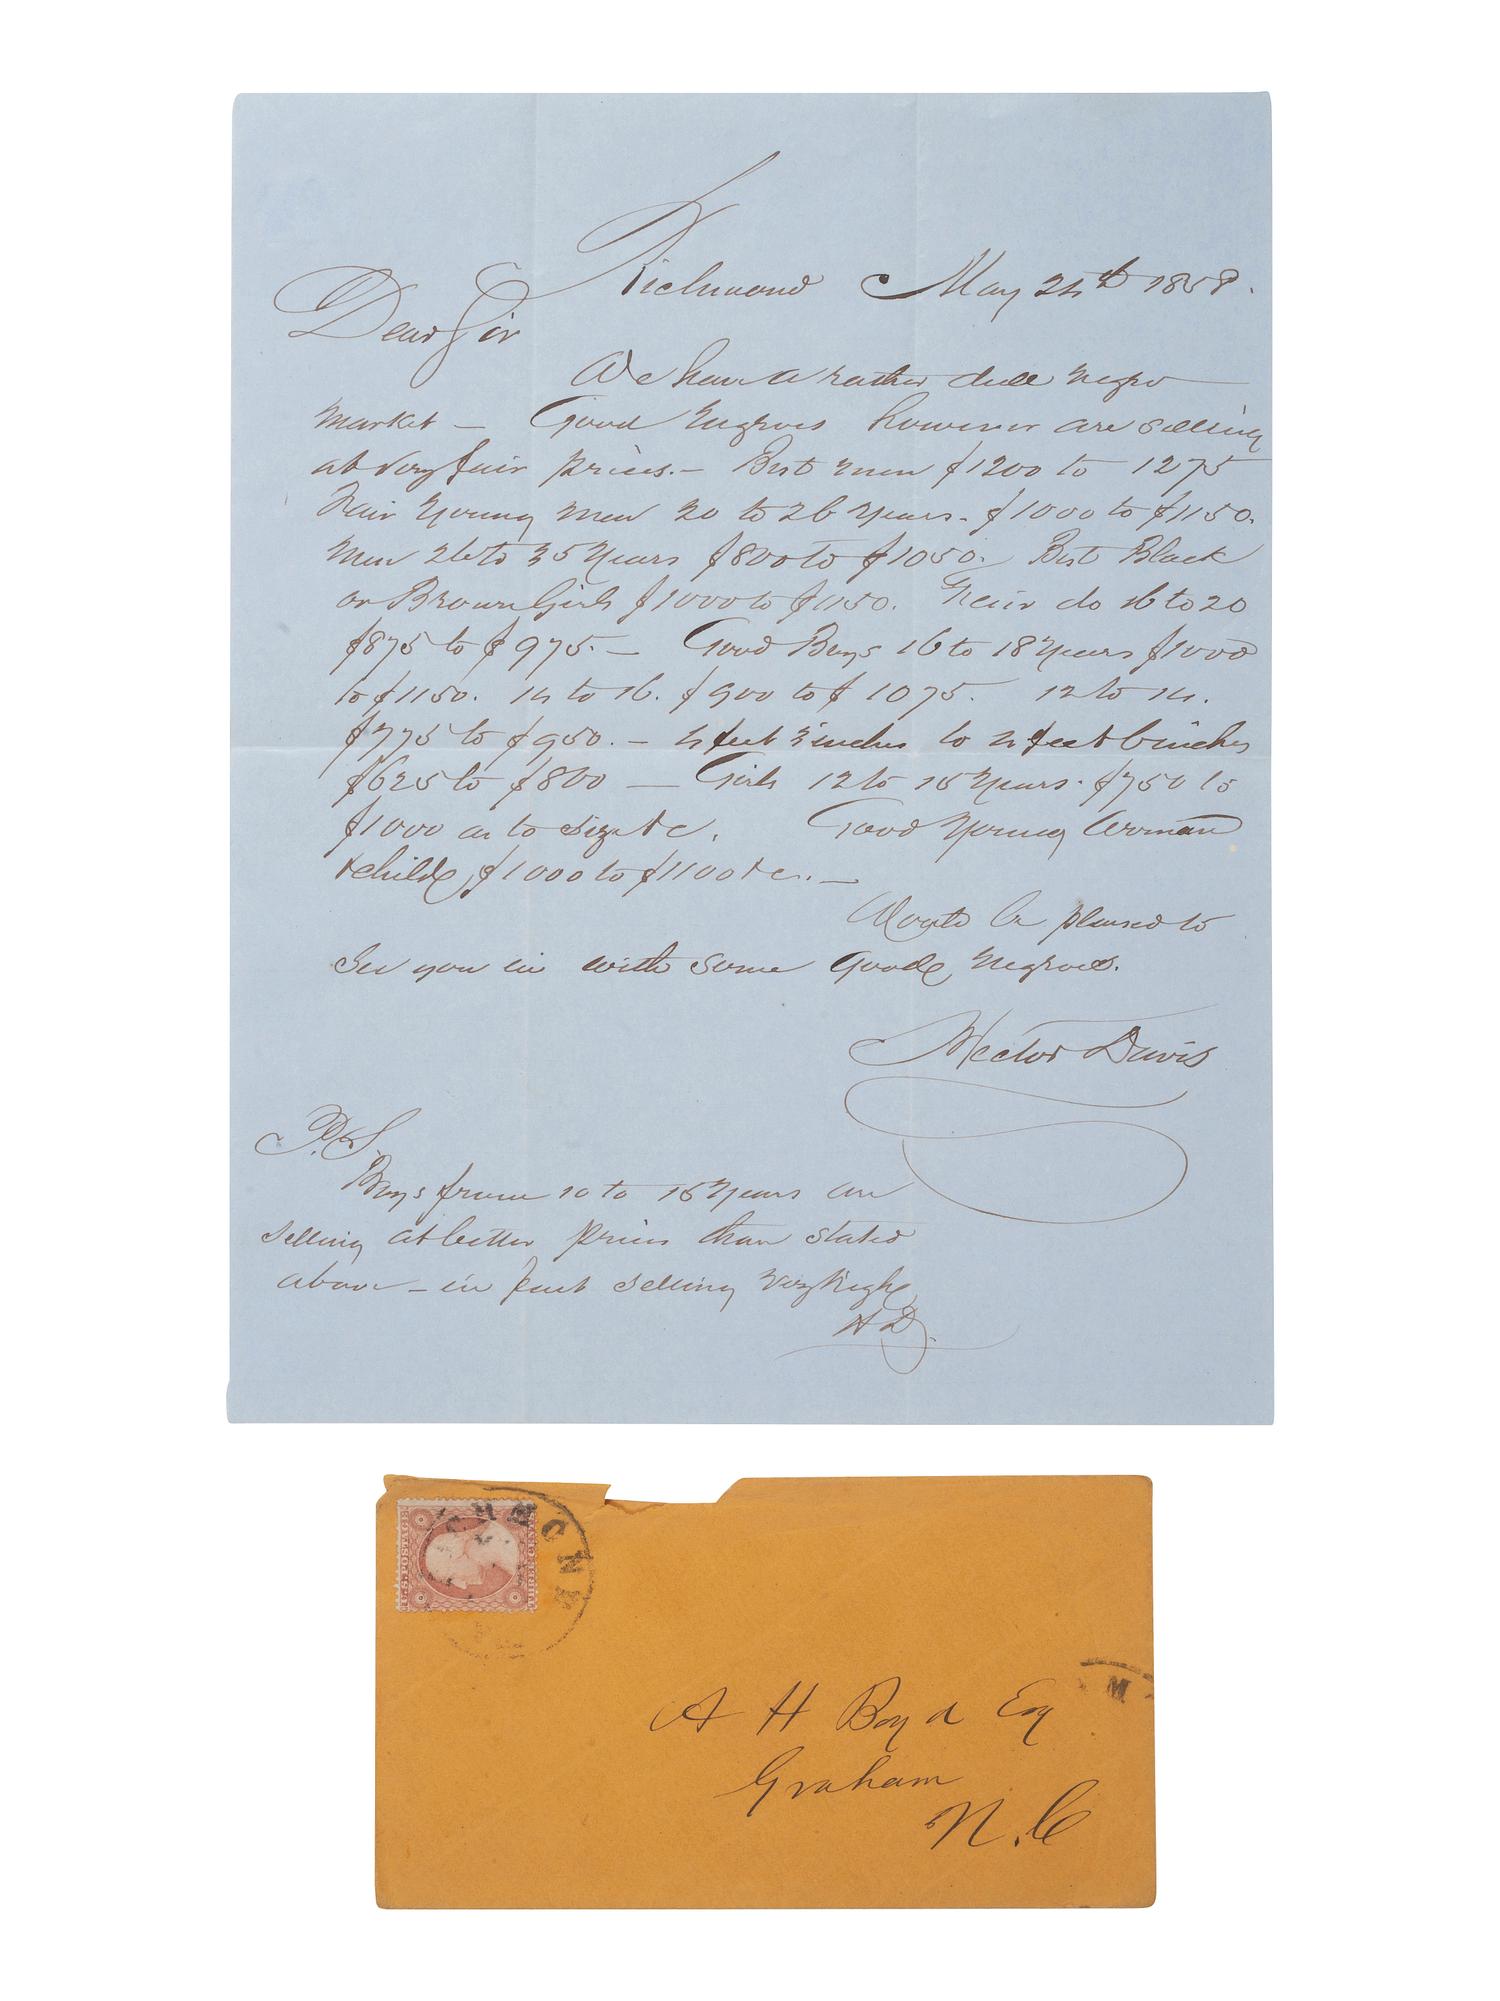 Richmond May 24th 1858.
Dear Sir
We have a rather dull negro
market — Good Negroes however are selling
at very fair prices. — Best men $1200 to 1275
Fair Young men 20 to 26 Years. $1000 to $1150.
Men 26 to 35 Years $800 to $1050. Best Black
or Brown Girls $1000 to $1150. Fair do 16 to 20
$875 to $975. — Good Boys 16 to 18 Years $1000
to $1150. 14 to 16. $900 to $1075. 12 to 14.
$775 to $950. — 4 feet 3 inches to 4 feet 6 inches
$625 to $800 — Girls 12 to 15 Years. $750 to
$1000 as to size &c. Good Young Woman
& child $1000 to $1100 &c. —
Would be pleased to
See you in with some good negroes.
Hector Davis
P.S.
Boys from 10 to 15 Years are
selling at better prices than stated
above — in fact selling very high
HD.
U.S. POSTAGE
THREE CENTS
A H Boyd Esq
Graham
N.C